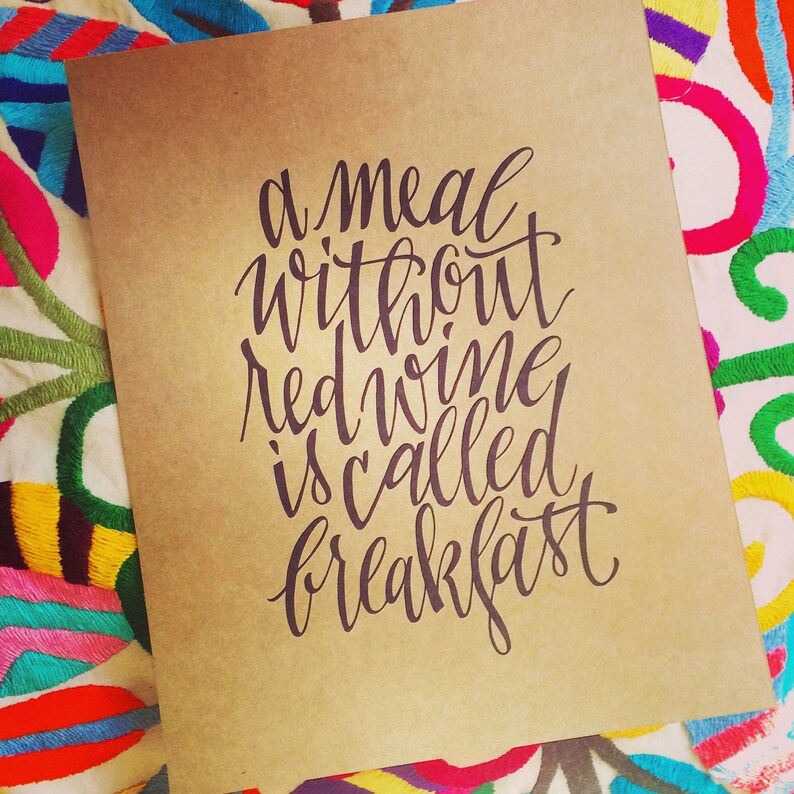 a meal
without
red wine
is called
breakfast